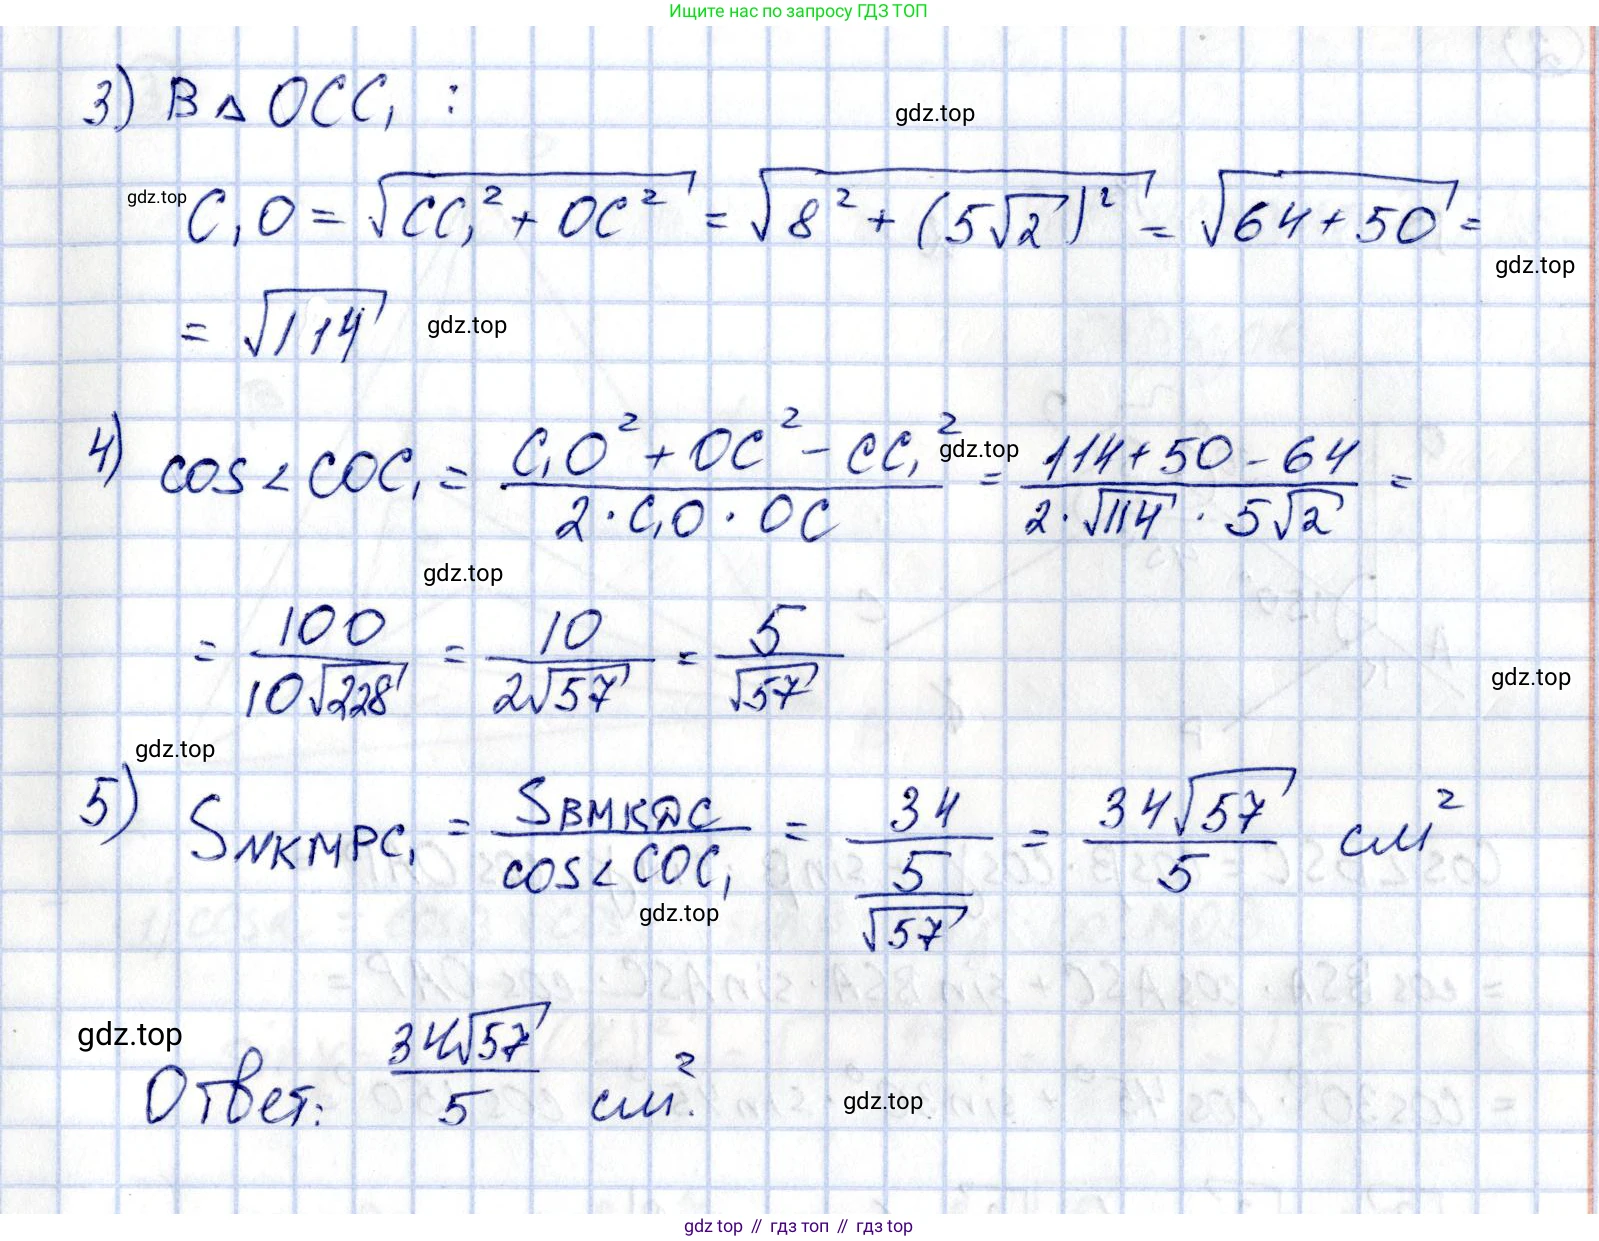 Ищите нас по запросу ГДЗ ТОП
3) В Δ OCC₁ :
gdz.top
gdz.top
C₁O = √(CC₁² + OC²) = √(8² + (5√2)²) = √(64 + 50) =
gdz.top
= √114
gdz.top
4) cos < COC₁ = (C₁O² + OC² - CC₁²) / (2 · C₁O · OC) = (114 + 50 - 64) / (2 · √114 · 5√2) =
gdz.top
gdz.top
= 100 / (10√228) = 10 / (2√57) = 5 / √57
gdz.top
gdz.top
5) S_NKMPC₁ = S_BMKDC / cos < COC₁ = 34 / (5 / √57) = 34√57 / 5 см²
gdz.top
gdz.top
Ответ: 34√57 / 5 см².
gdz.top
gdz top // гдз топ // gdz top